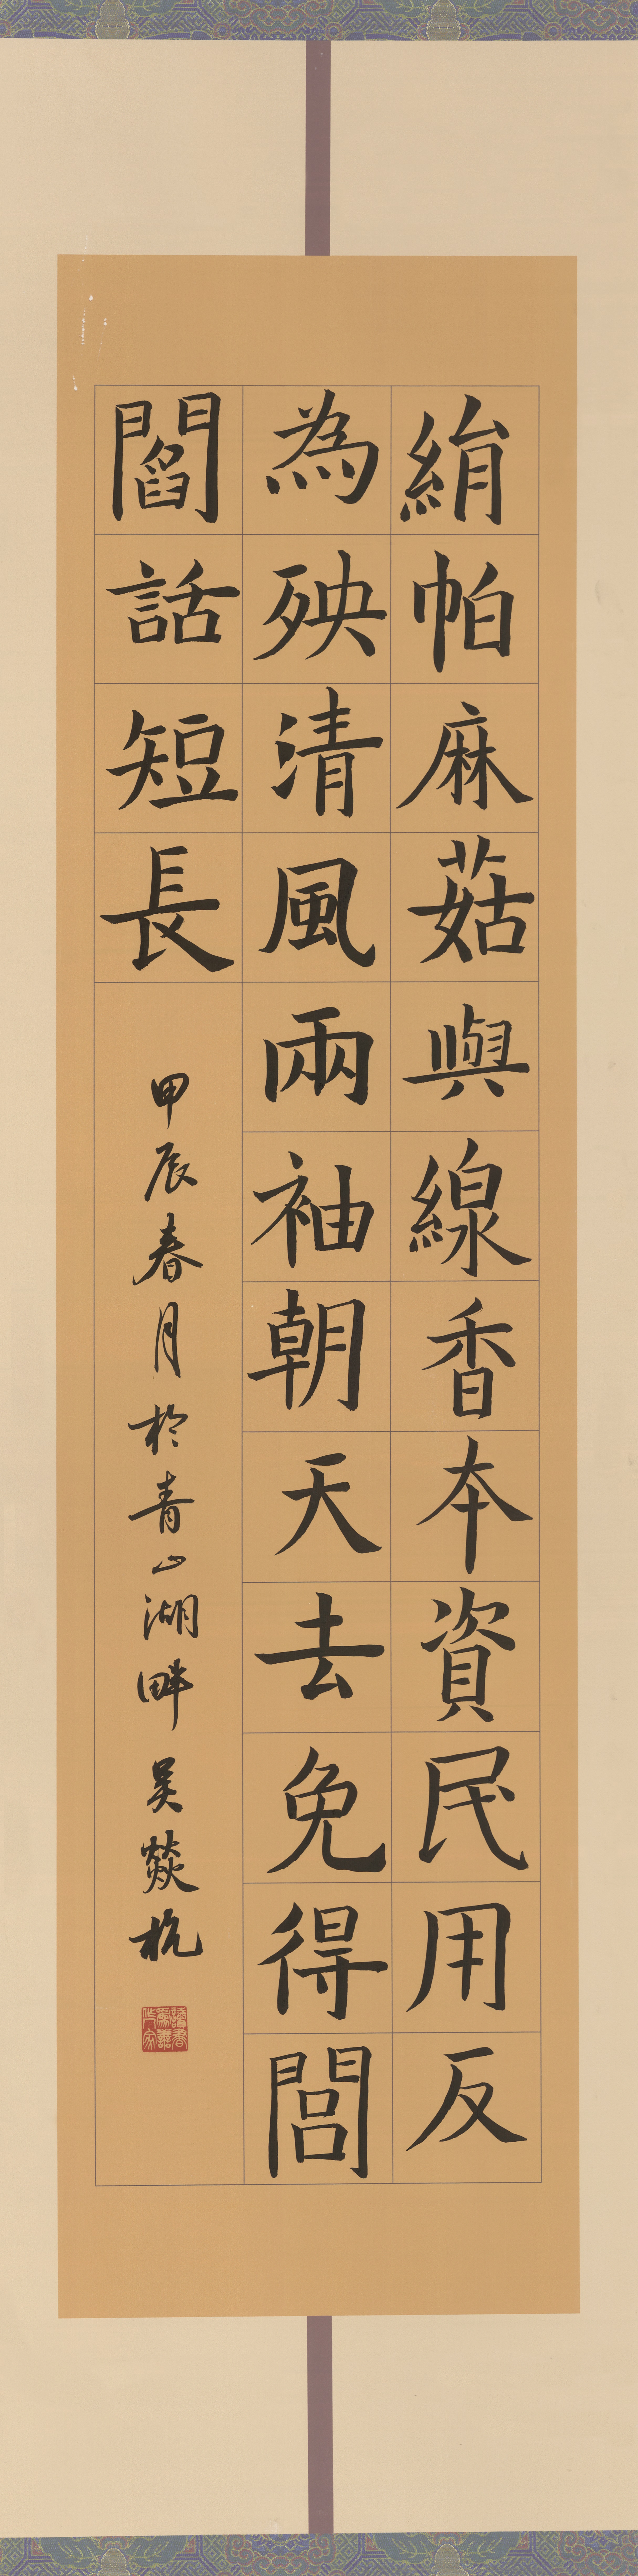 絹帕麻菇與線香本資民用反
為殃清風兩袖朝天去免得閭
閻話短長
甲辰春月於青山湖畔吳燚杭